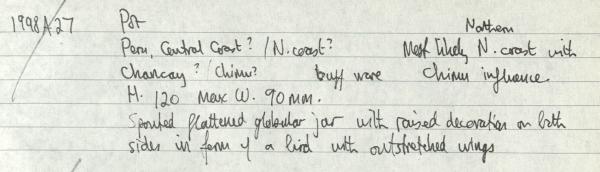 1998 A 27 Pot
Northern
Peru, Central Coast? / N. coast? Most likely N. coast with
Chancay? / Chimu? buff ware Chimu influence.
H. 120 Max W. 90 mm.
Spouted flattened globular jar with raised decoration on both
sides in form of a bird with outstretched wings